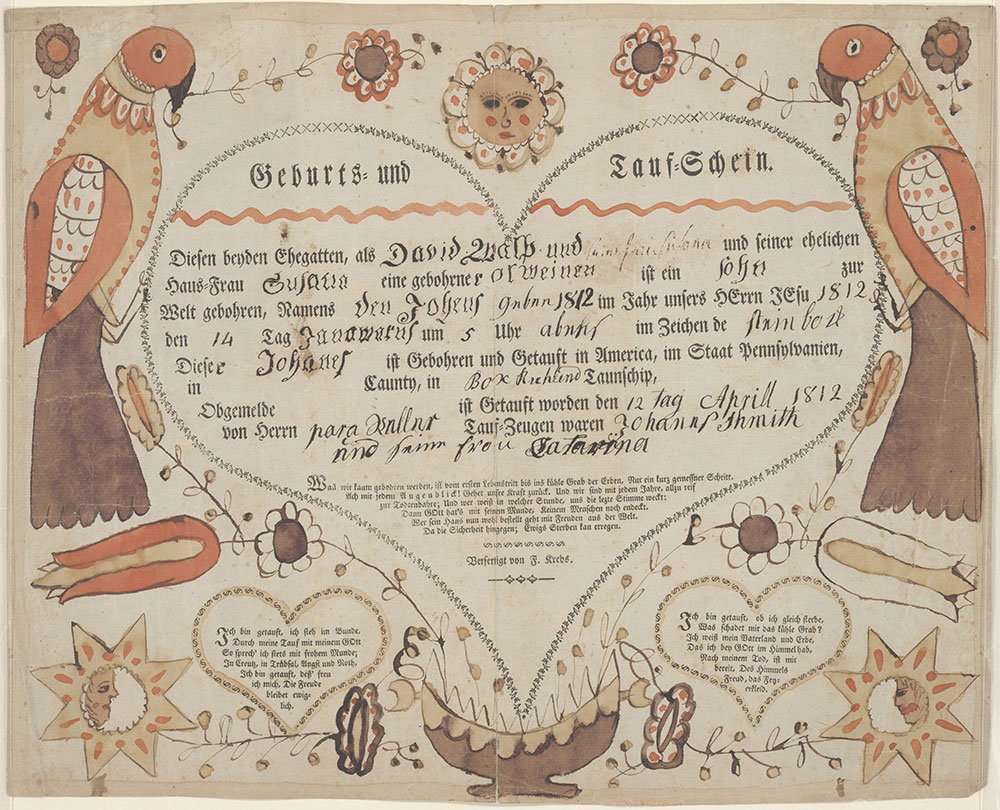 Geburts- und Tauf-Schein.
Diesen beyden Ehegatten, als David Walß und und seiner ehelichen
Haus-Frau Susana eine gebohrne ist ein sohn zur
Welt gebohren, Namens den Johens 1812 im Jahr unsers HErrn JEsu 1812
den 14 Tag um 5 Uhr abents im Zeichen de steinbock
Dieser Johanes ist Gebohren und Getauft in America, im Staat Pennsylvanien,
in Caunty, in Taunschip,
Obgemelde ist Getauft worden den 12 tag Aprill 1812
von Herrn para Tauf-Zeugen waren Johanns Shmith
und seine frau Catarina
Was wir kaum gebohren werden, ist vom ersten Lebenstritt bis ins kühle Grab der Erden, Nur ein kurz gemeßner Schritt.
Ach mit jedem Augenblick! Gehet unsre Kraft zurück. Und wir sind mit jedem Jahre, allzu reif
zur Todtenbahre; Und wer weiß in welcher Stunde, uns die lezte Stimme weckt:
Dann GOtt hat's mit seinem Munde, Keinem Menschen noch endeckt.
Wer sein Haus nun wohl bestellt geht mit Freuden aus der Welt.
Da die Sicherheit hingegen; Ewigs Sterben kan erregen.
Verfertigt von F. Krebs.
Ich bin getauft, ich steh im Bunde,
Durch meine Tauf mit meinem GOtt
So sprech' ich stets mit frohem Munde;
In Creutz, in Trübsal, Angst und Noth,
Ich bin getauft, deß' freu
ich mich, Die Freude
bleibet ewig-
lich.
Ich bin getauft, ob ich gleich sterbe,
Was schadet mir das kühle Grab?
Ich weiß mein Vaterland und Erbe,
Das ich bey GOtt im Himmel hab.
Nach meinem Tod, ist mir
bereit, Des Himmels
Freud, das Fey-
erkleid.